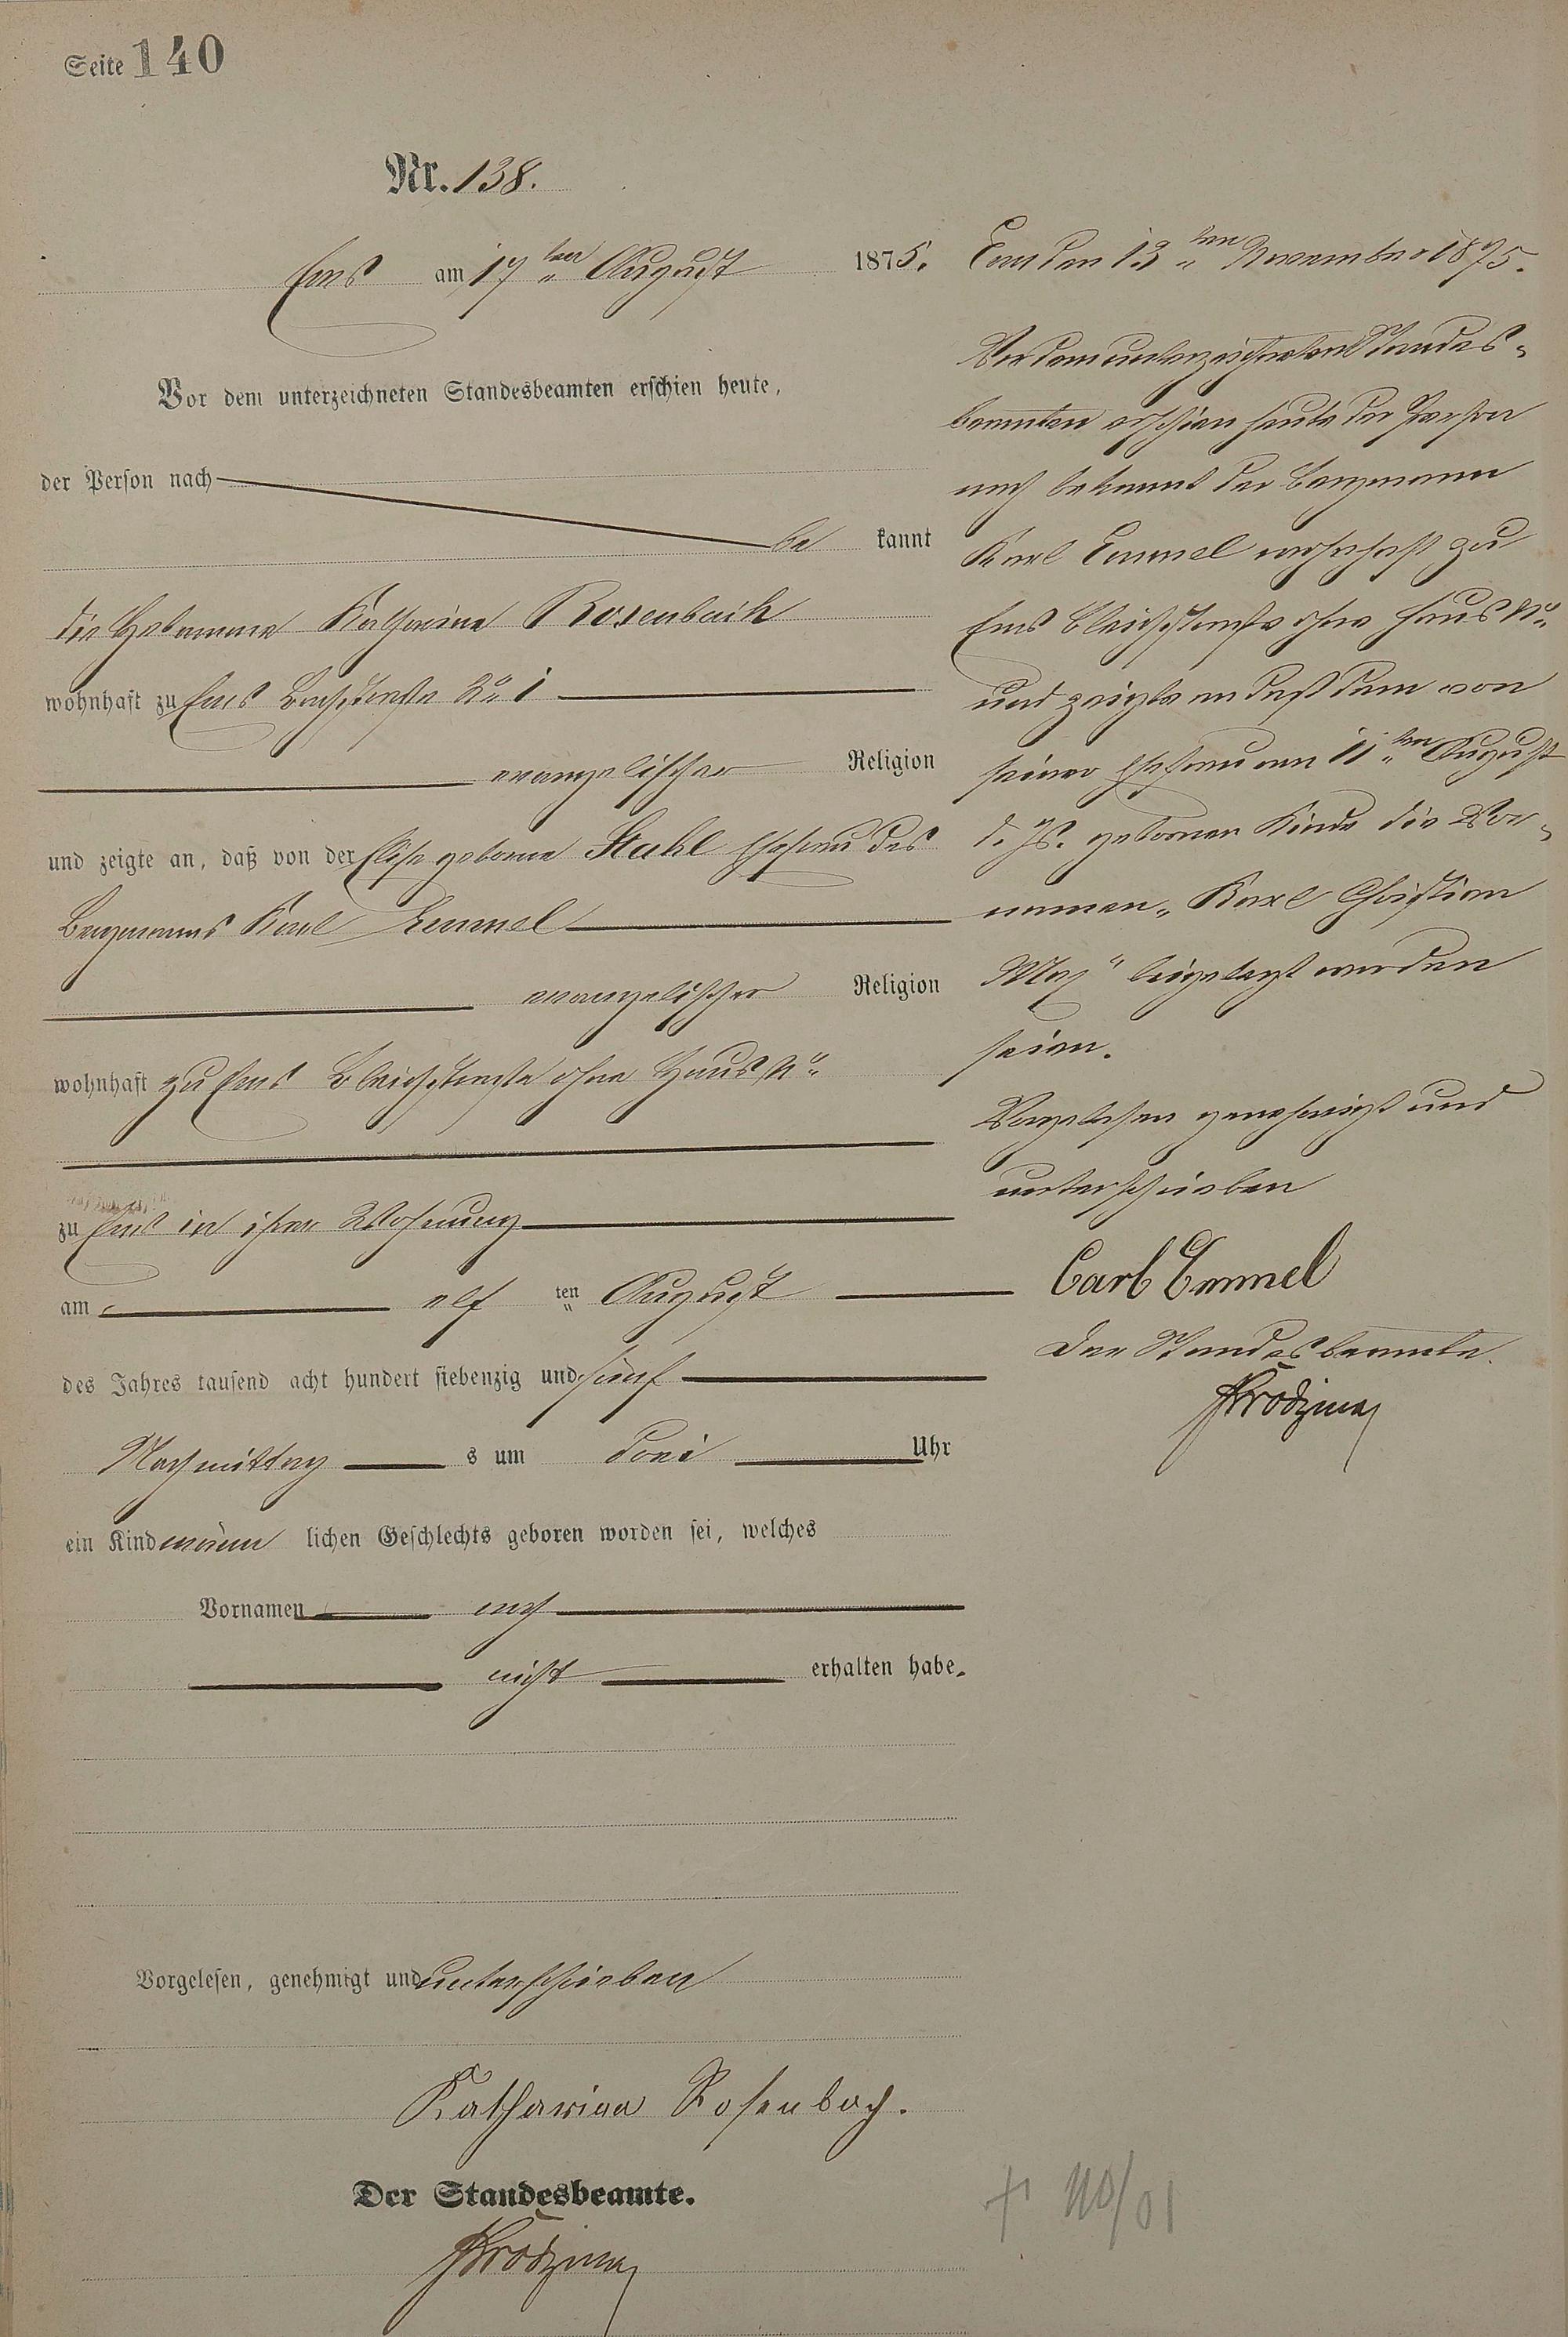 Seite 140
Nr. 138.
Ems am 17ten August 1875.
Vor dem unterzeichneten Standesbeamten erschien heute,
der Person nach
be kannt
die Hebamme Katharina Rosenbach
wohnhaft zu Ems Bachstraße No 1
evangelischer Religion
und zeigte an, daß von der Elise geborne Stahl Ehefrau des
Bergmanns Karl Emmel
evangelischer Religion
wohnhaft zu Ems Bleichstraße ohne Haus No
zu Ems in ihrer Wohnung
am elf ten August
des Jahres tausend acht hundert siebenzig und fünf
Nachmittag s um drei Uhr
ein Kind männ lichen Geschlechts geboren worden sei, welches
Vornamen noch
nicht erhalten habe.
Vorgelesen, genehmigt und unterschrieben
Katharina Rosenbach.
Der Standesbeamte.
Ems den 13ten November 1875.
Vor dem unterzeichneten Standes-
beamten erschien heute der Person
nach bekannt der Bergmann
Karl Emmel wohnhaft zu
Ems Bleichstraße ohne Haus No
und zeigte an daß dem von
seiner Ehefrau am 11ten August
d. Js. gebornen Kinde die Vor-
namen „Karl Christian
Max" beigelegt worden
seien.
Vorgelesen genehmigt und
unterschrieben
Carl Emmel
Der Standesbeamte.
+ 110/01